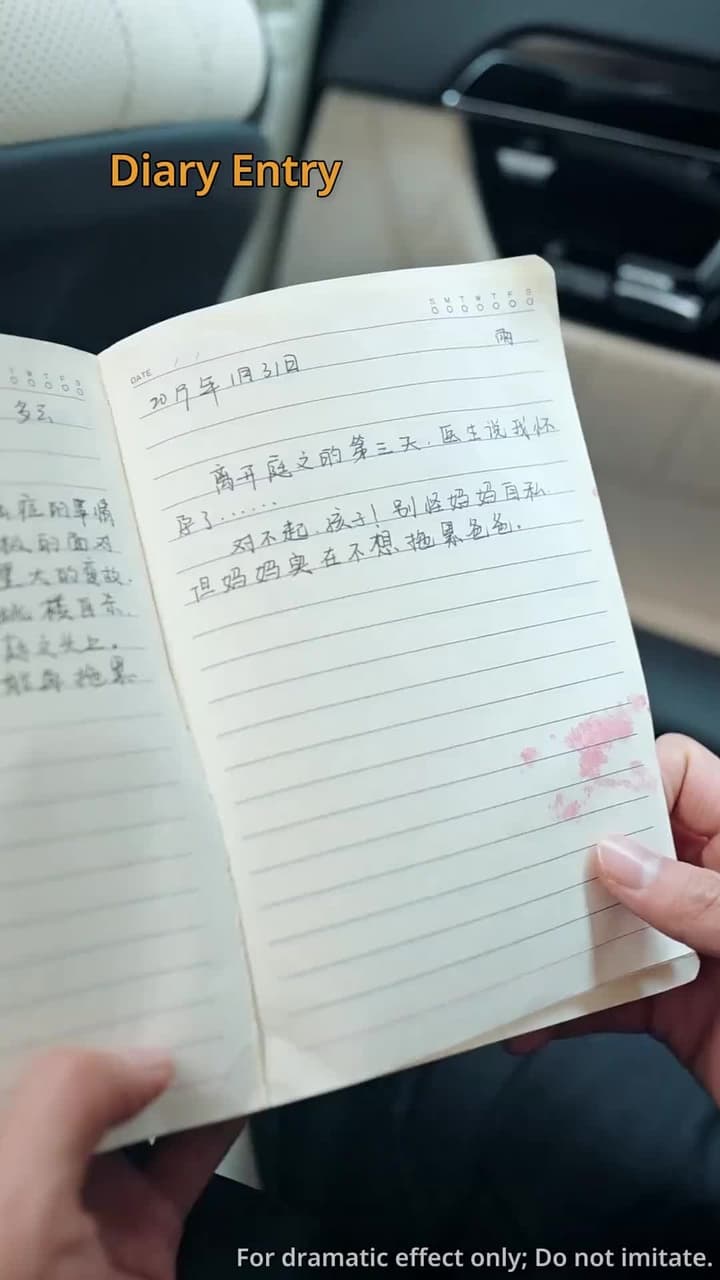 Diary Entry
S M T W T F S
DATE / /
雨
2019年1月31日
离开庭之的第三天.医生说我怀
孕了......
对不起.孩子!别怪妈妈自私.
但妈妈实在不想拖累爸爸.
T W T F S
多云
症的事情
的面对
大的变故.
跳楼自杀.
庭之头上.
能再拖累
For dramatic effect only; Do not imitate.